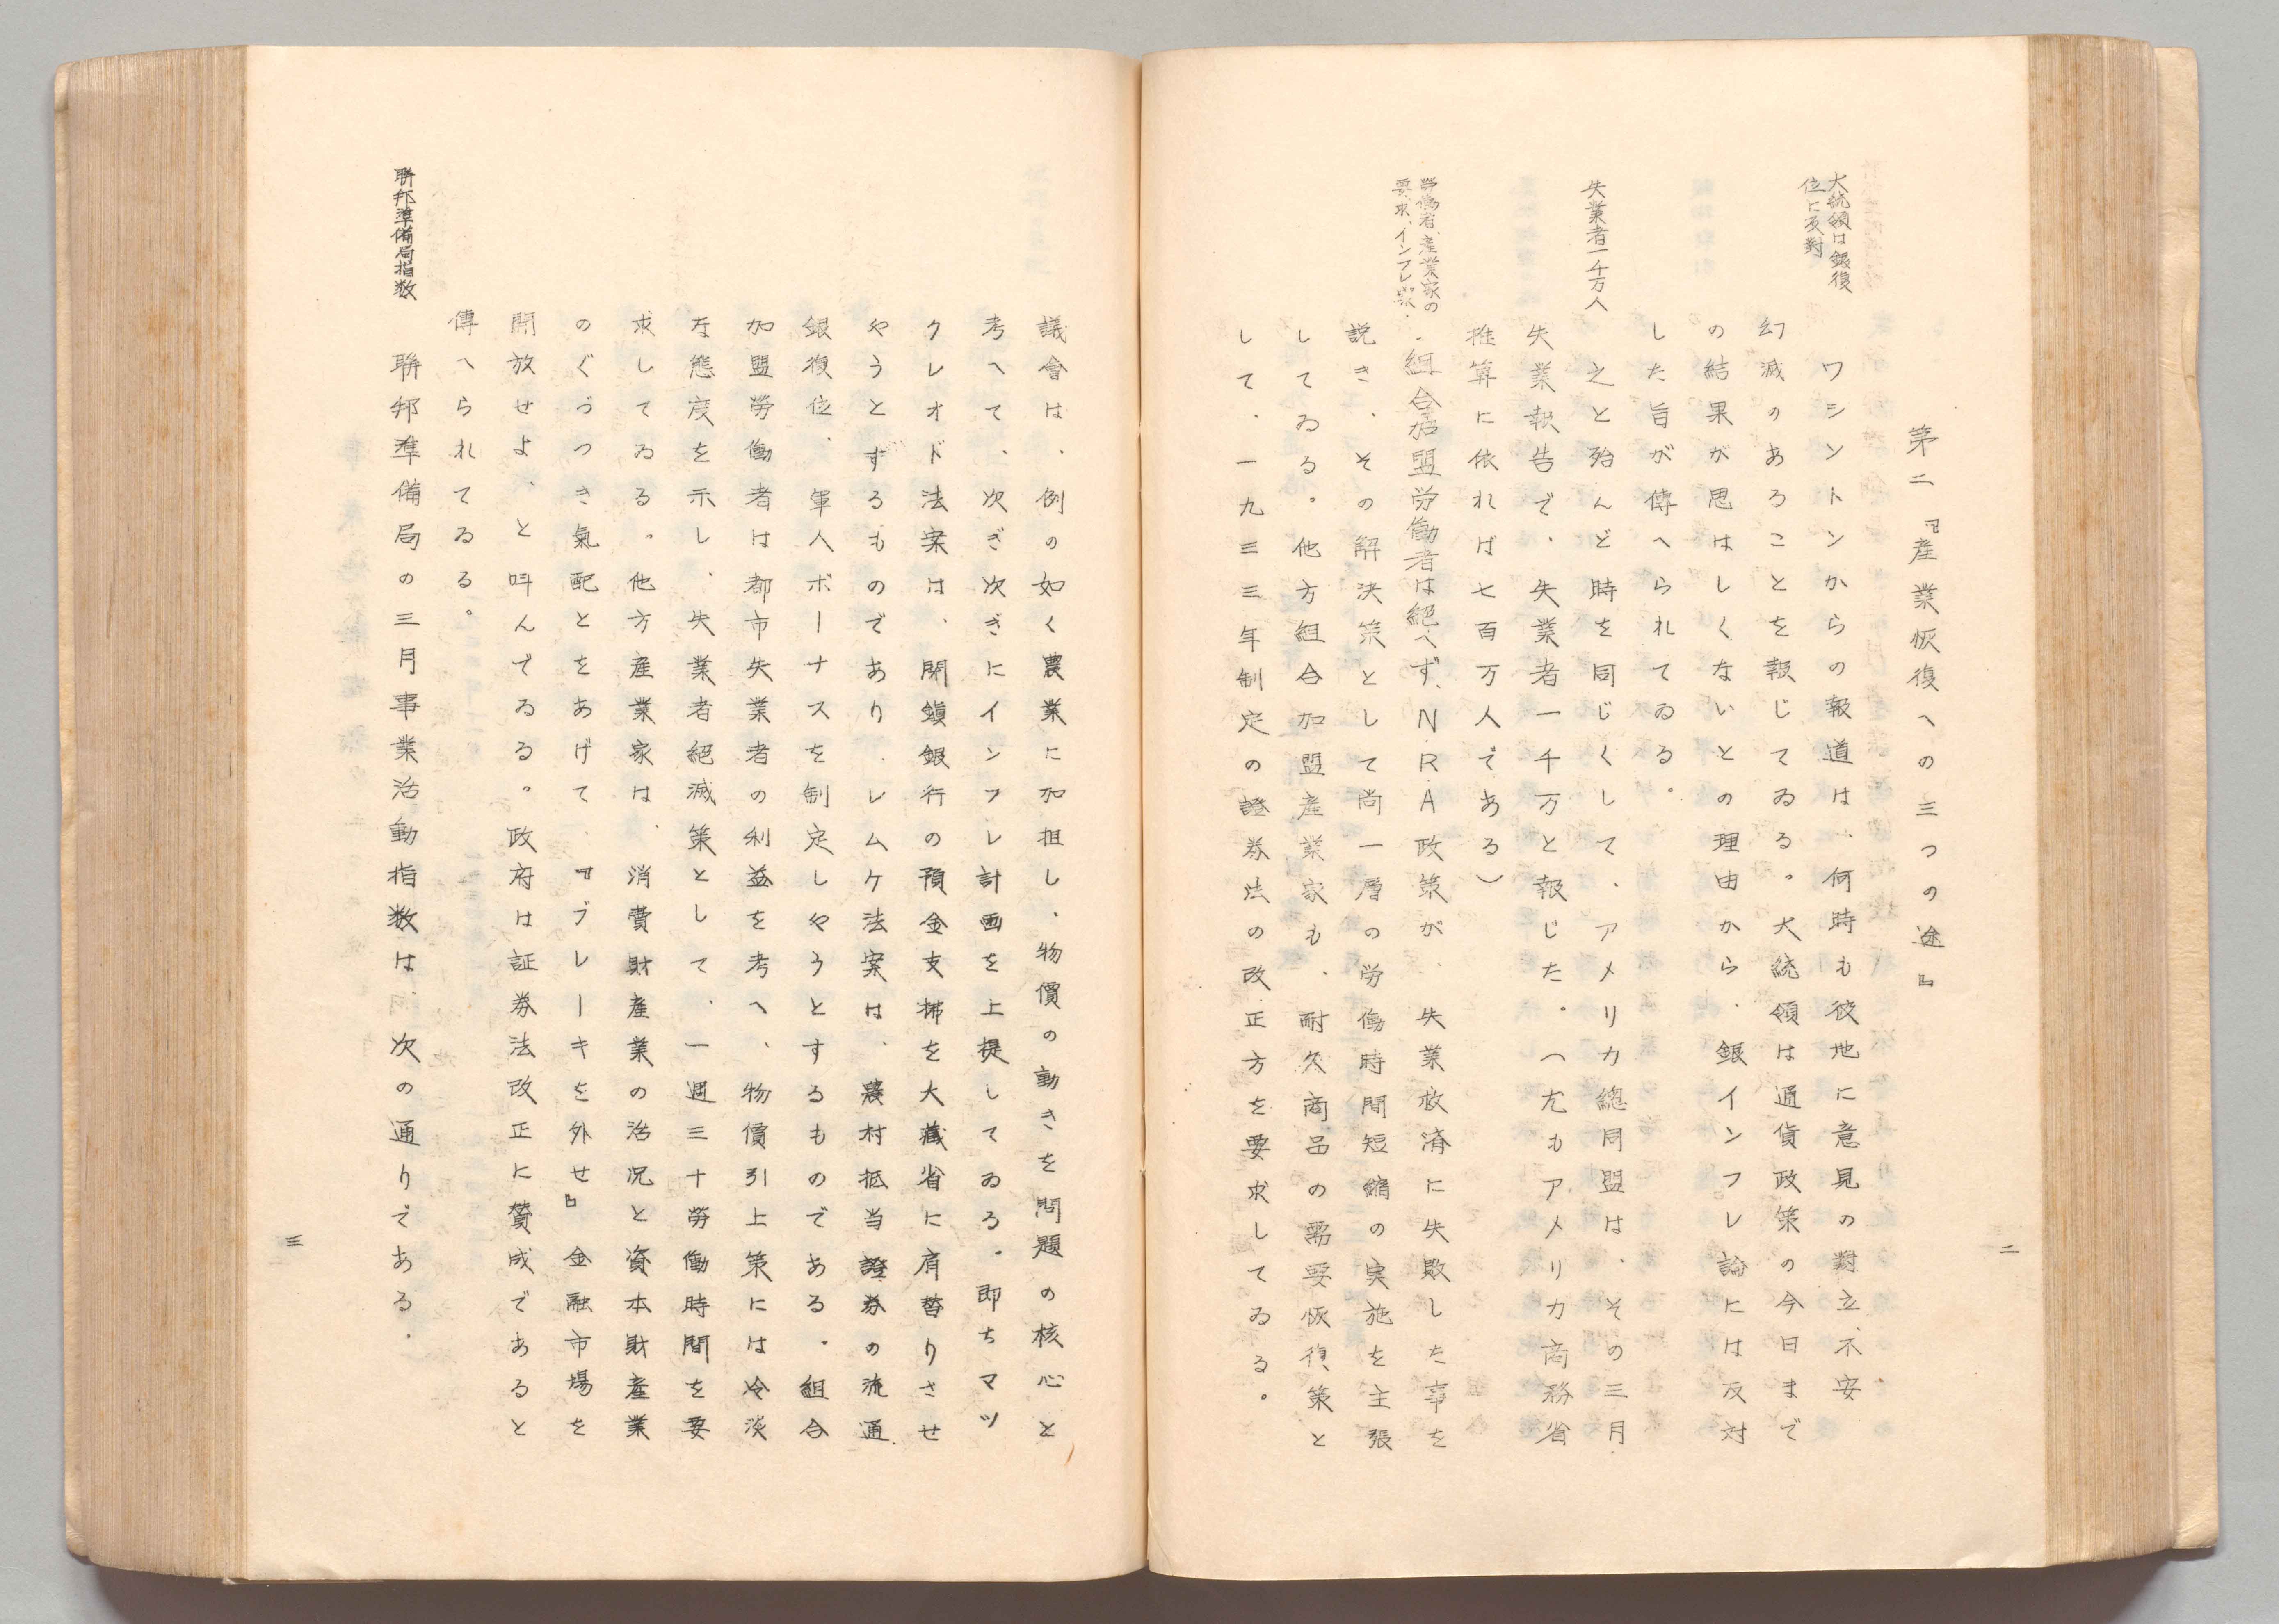 二
第二『産業恢復への三つの途』
大統領は銀復
位に反對
ワシントンからの報道は、何時も彼地に意見の對立、不安
幻滅のあることを報じてゐる。大統領は通貨政策の今日まで
の結果が思はしくないとの理由から、銀インフレ論には反対
した旨が傳へられてゐる。
失業者一千万人
之と殆んど時を同じくして、アメリカ總同盟は、その三月
失業報告で、失業者一千万と報じた。(尤もアメリカ商務省
推算に依れば七百万人である)
労働者、産業家の
要求、インフレ家、
組合加盟労働者は絕へず、N.R.A政策が、失業救済に失敗した事を
説き、その解決策として尚一層の労働時間短縮の実施を主張
してゐる。他方組合加盟産業家も、耐久商品の需要恢復策と
して、一九三三年制定の證券法の改正方を要求してゐる。
議會は、例の如く農業に加担し、物價の動きを問題の核心と
考へて、次ぎ次ぎにインフレ計画を上提してゐる。即ちマツ
クレオド法案は、閉鎖銀行の預金支拂を大藏省に肩替りさせ
やうとするものであり、レムケ法案は、農村抵当證券の流通、
銀復位、軍人ボーナスを制定しやうとするものである。組合
加盟勞働者は都市失業者の利益を考へ、物價引上策には冷淡
な態度を示し、失業者絕滅策として、一週三十勞働時間を要
求してゐる。他方産業家は、消費財産業の活況と資本財産業
のぐうつき氣配とをあげて、『ブレーキを外せ』金融市場を
開放せよ、と叫んでゐる。政府は証券法改正に賛成であると
傳へられてゐる。
聯邦準備局指数
聯邦準備局の三月事業活動指数は、次の通りである。
三